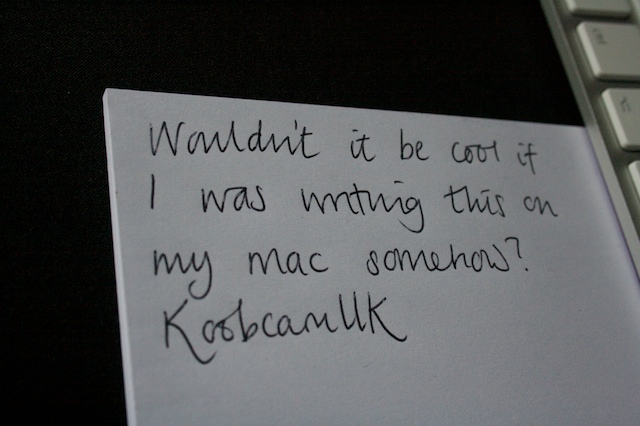 Wouldn't it be cool if
I was writing this on
my mac somehow?
KoobcamUK